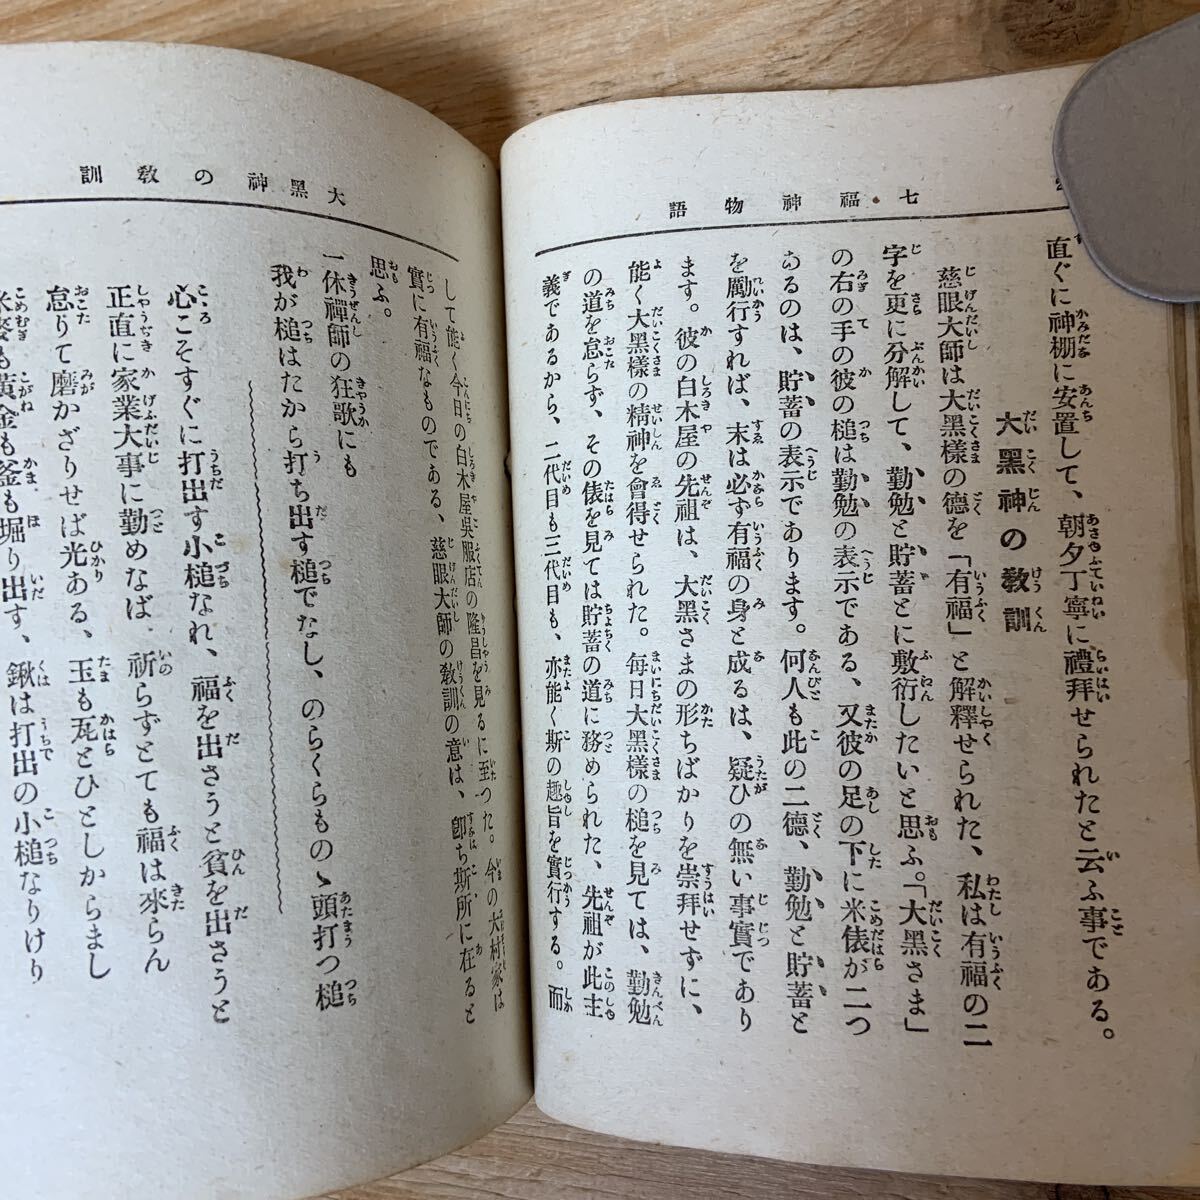 七福神物語
直ぐに神棚に安置して、朝夕丁寧に禮拜せられたと云ふ事である。
大黑神の敎訓
慈眼大師は大黑樣の德を「有福」と解釋せられた、私は有福の二
字を更に分解して、勤勉と貯蓄とに敷衍したいと思ふ。「大黑さま」
の右の手の彼の槌は勤勉の表示である、又彼の足の下に米俵が二つ
あるのは、貯蓄の表示であります。何人も此の二德、勤勉と貯蓄と
を勵行すれば、末は必ず有福の身と成るは、疑ひの無い事實であり
ます。彼の白木屋の先祖は、大黑さまの形ちばかりを崇拜せずに、
能く大黑樣の精神を會得せられた。每日大黑樣の槌を見ては、勤勉
の道を怠らず、その俵を見ては貯蓄の道に務められた、先祖が此主
義であるから、二代目も三代目も、亦能く斯の趣旨を實行する。而
大黑神の敎訓
して能く今日の白木屋吳服店の隆昌を見るに至つた。今の大村家は
實に有福なものである、慈眼大師の敎訓の意は、卽ち斯所に在ると
思ふ。
一休禪師の狂歌にも
我が槌はたから打ち出す槌でなし、のらくらものゝ頭打つ槌
心こそすぐに打出す小槌なれ、福を出さうと貧を出さうと
正直に家業大事に勤めなば 祈らずとても福は來らん
怠りて磨かざりせば光ある、玉も瓦とひとしからまし
米麥も黃金も釜も堀り出す、鍬は打出の小槌なりけり